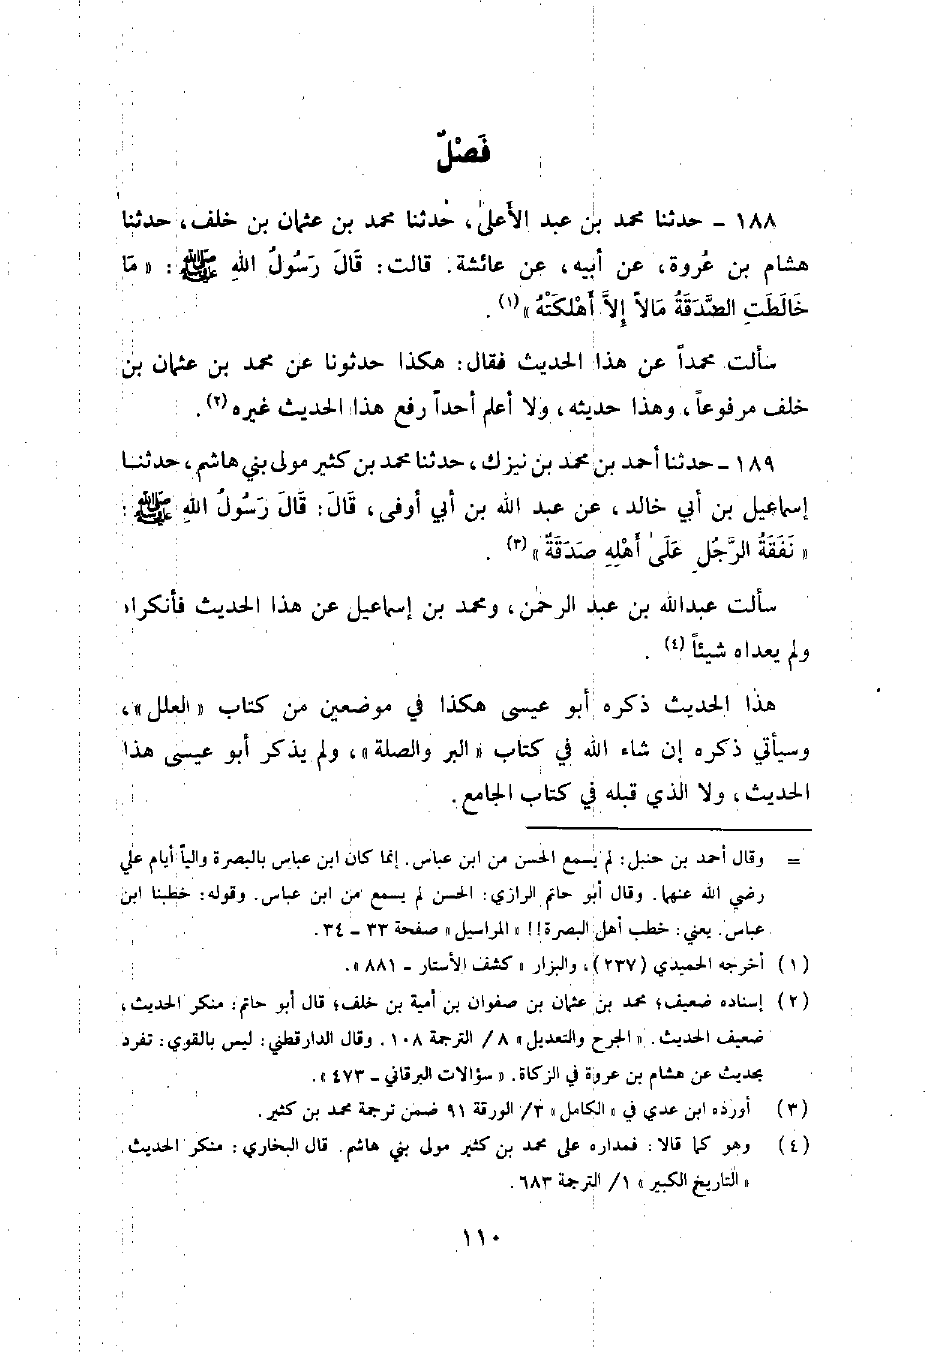 فَصْلٌ
١٨٨ ـ حدثنا محمد بن عبد الأعلىٰ، حدثنا محمد بن عثمان بن خلف، حدثنا
هشام بن عُروة، عن أبيه، عن عائشة. قالت: قَالَ رَسُولُ اللهِ ﷺ: « مَا
خَالَطَتِ الصَّدَقَةُ مَالاً إِلاَّ أَهْلكَتْهُ »(١).
سألت محمداً عن هذا الحديث فقال: هكذا حدثونا عن محمد بن عثمان بن
خلف مرفوعاً، وهذا حديثه، ولا أعلم أحداً رفع هذا الحديث غيره(٢).
١٨٩ ـ حدثنا أحمد بن محمد بن نيزك، حدثنا محمد بن كثير مولى بني هاشم، حدثنا
إسماعيل بن أبي خالد، عن عبد الله بن أبي أوفى، قَالَ: قَالَ رَسُولُ اللهِ ﷺ:
« نَفَقَةُ الرَّجُلِ عَلَىٰ أَهْلِهِ صَدَقَةٌ »(٣).
سألت عبدالله بن عبد الرحمٰن، ومحمد بن إسماعيل عن هذا الحديث فأنكراه
ولم يعداه شيئاً(٤).
هذا الحديث ذكره أبو عيسى هكذا في موضعين من كتاب « العلل »،
وسيأتي ذكره إن شاء الله في كتاب « البر والصلة »، ولم يذكر أبو عيسى هذا
الحديث، ولا الذي قبله في كتاب الجامع.
= وقال أحمد بن حنبل: لم يسمع الحسن من ابن عباس. إنما كان ابن عباس بالبصرة والياً أيام علي
رضي الله عنهما. وقال أبو حاتم الرازي: الحسن لم يسمع من ابن عباس. وقوله: خطبنا ابن
عباس. يعني: خطب أهل البصرة!! « المراسيل » صفحة ٣٣ ـ ٣٤.
(١) أخرجه الحميدي (٢٣٧)، والبزار « كشف الأستار ـ ٨٨١ ».
(٢) إسناده ضعيف؛ محمد بن عثمان بن صفوان بن أمية بن خلف؛ قال أبو حاتم: منكر الحديث،
ضعيف الحديث. « الجرح والتعديل » ٨/ الترجمة ١٠٨. وقال الدارقطني: ليس بالقوي: تفرد
بحديث عن هشام بن عروة في الزكاة. « سؤالات البرقاني ـ ٤٧٣ ».
(٣) أورده ابن عدي في « الكامل » ٣/ الورقة ٩١ ضمن ترجمة محمد بن كثير.
(٤) وهو كما قالا: فمداره على محمد بن كثير مولى بني هاشم. قال البخاري: منكر الحديث.
« التاريخ الكبير » ١/ الترجمة ٦٨٣.
١١٠